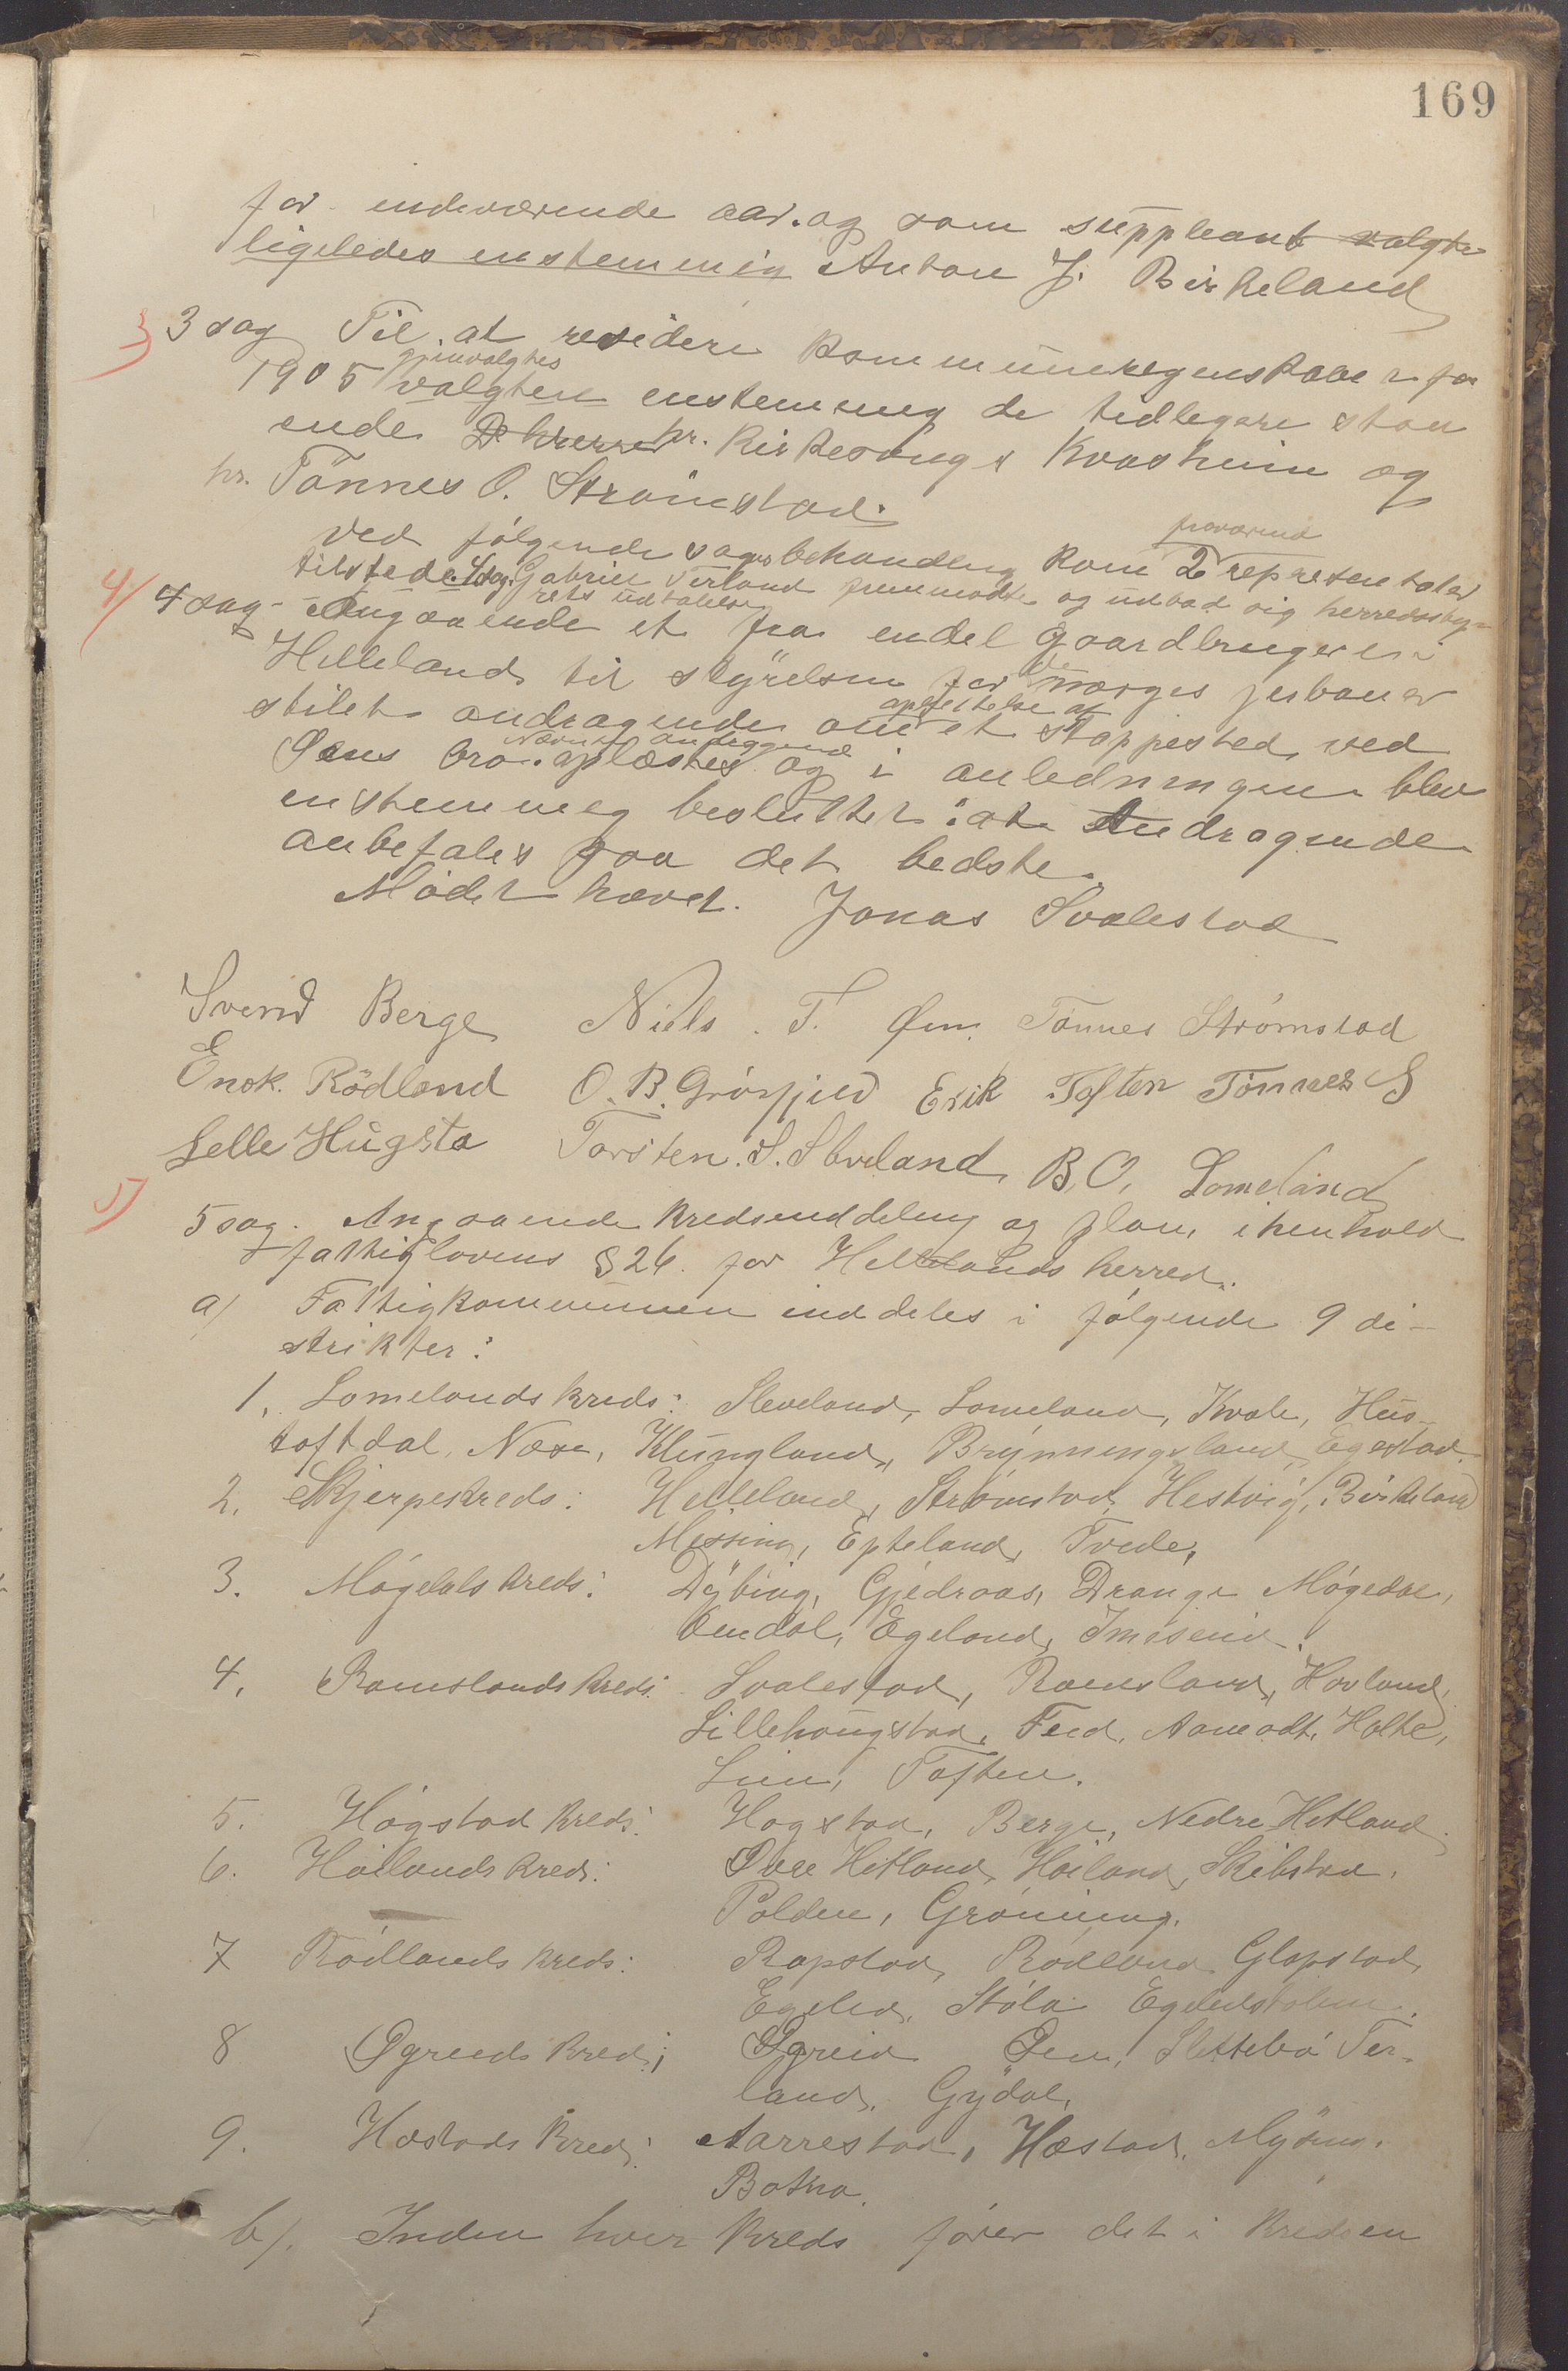 169
for indeværende aar. og som suppleant valgtes
ligeledes enstemmig Anton J. Birkeland
3) 3 sag Til at revidere kommuneregnskaber for
gjenvalgtes
1905 valgten enstemmig de tidligere staa
ende D herrer hr. Kirkesanger Kvasheim og
hr. Tönnes O. Strömstad.
fraværende
Ved følgende sagsbehandling kom 2 repræsentater
tilstede. Ldag. Gabriel Terland fremmødte og udbad sig herredssty-
rets udtalelse
4/ 4 sag - Angaaende et fra endel gaardbrugere i
Helleland til styrelsen for de norges jerbaner
oprettelse af
stilet andragende om et stoppested ved
Nævnte andragende
Øens bro. oplæstes og i anledningen blev
enstemmeg besluttet: at Andragende
anbefales paa det bedste.
Mödet hævet. Jonas Svalestad
Svend Berge Niels. T. Øen. Tönnes Strömstad
Enok. Rödland O. B. Grösfjeld Erik Toften Tönnes S
Lelle Hügsta Torsten. S. Sleveland B. O. Lomeland
5) 5 sag. Angaaende kredsinddeling og plan, i henhold
fattiglovens § 26. for Hellelands herred.
a/ Fattigkommunen inddeles i følgende 9 di-
strikter:
1. Lomelands kreds: Sleveland, Lomeland, Kvale, Hus-
toftdal, Nøse, Klungland, Brynningsland, Egestad.
2. Skjerpe kreds: Helleland, Strömstad, Hestvig, Birkeland
Messing, Epteland, Tvede,
3. Mögedals kreds: Dybing, Gjedraas, Drange Mögedal,
Omdal, Egeland, Imisend.
4. Ramslands kreds: Svalestad, Ramsland, Hovland,
Lillehaugstad, Feed, Aamodt, Holte,
Lien, Toften.
5. Högstad kreds: Hogstad, Berge, Nedre Hetland.
6. Höilands kreds: Övre Hetland, Höiland, Skibstad.
Polden, Grönning.
7 Rödlands kreds: Rapstad, Rödland Glopstad,
Egeled, Stöla Egeledstolen.
8 Øgreids kreds; Øgreid Øen, Slettebö Ter-
land, Gydal.
9. Hæstads kreds: Aarrestad, Hæstad, Mysing.
Botna.
b/. Inden hver kreds förer det i kredsen